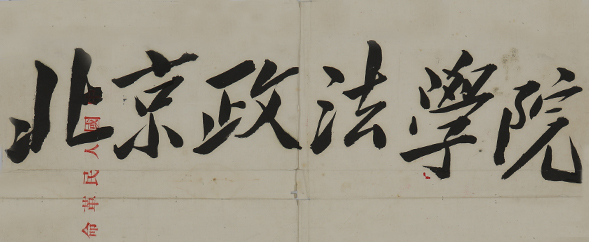 北京政法學院
國人民革命